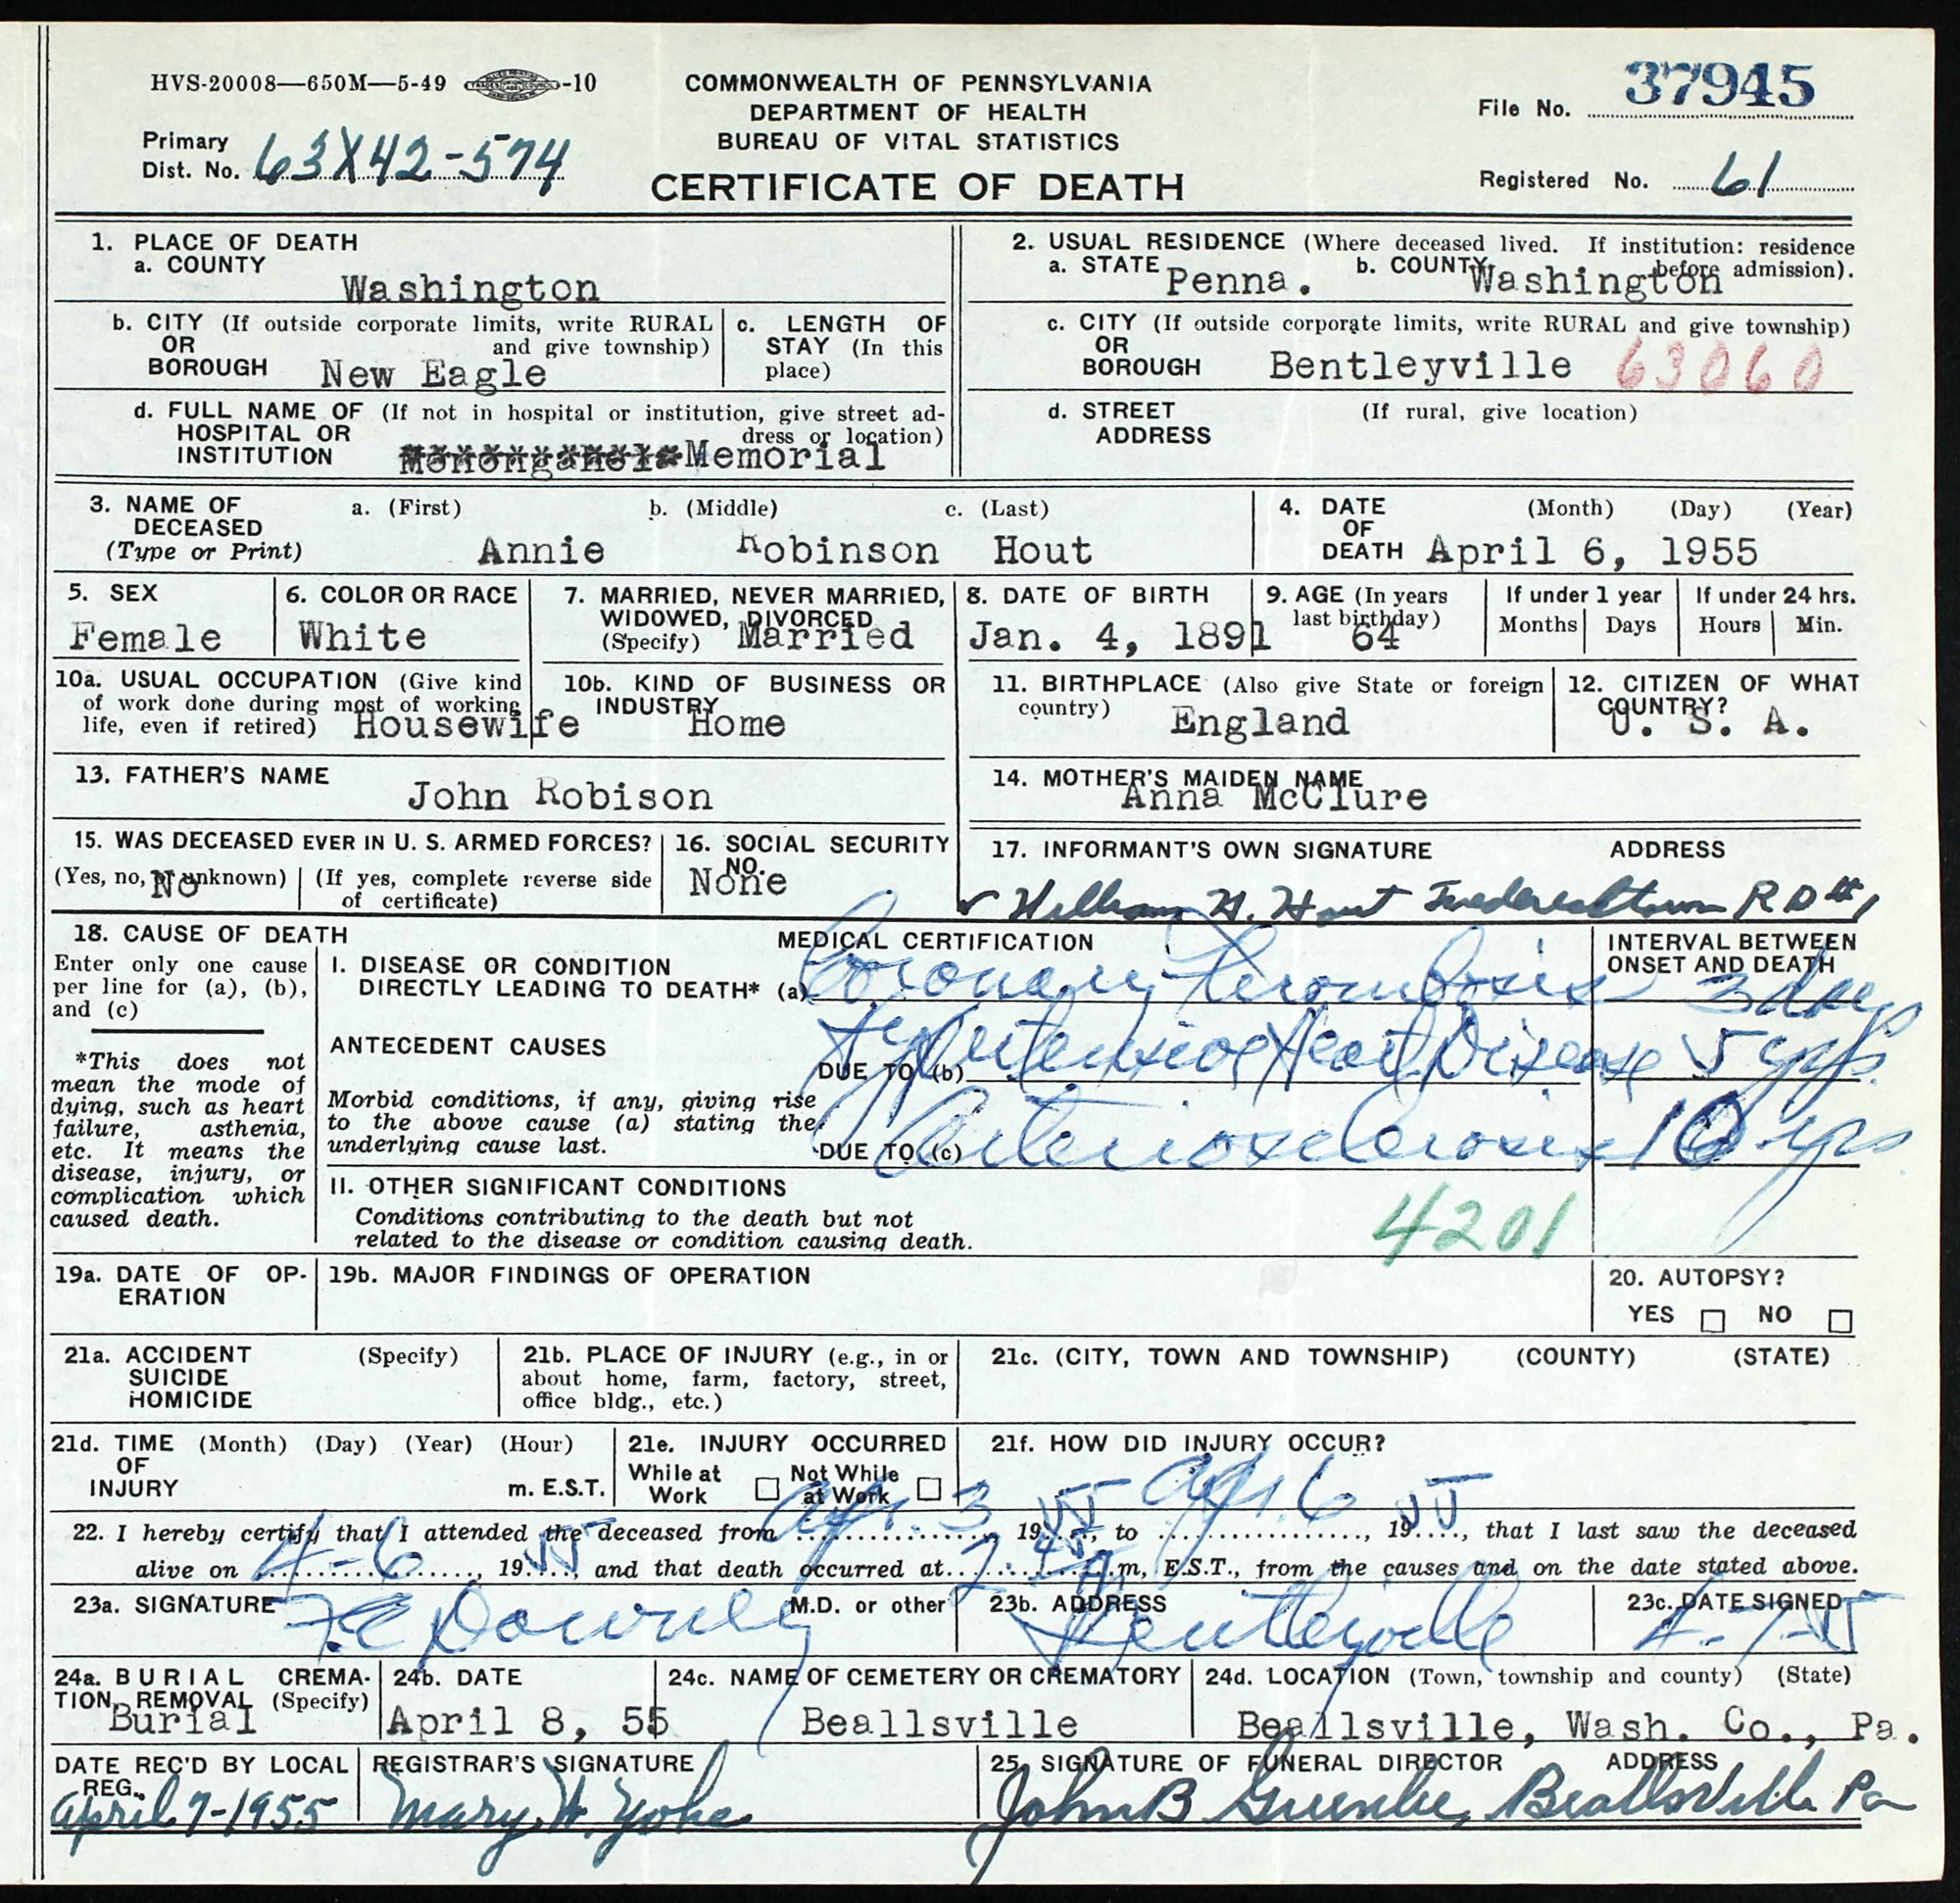 HVS-20008—650M—5-49 -10
COMMONWEALTH OF PENNSYLVANIA
DEPARTMENT OF HEALTH
BUREAU OF VITAL STATISTICS
CERTIFICATE OF DEATH
File No. 37945
Primary
Dist. No. 63X42-574
Registered No. 61
1. PLACE OF DEATH
a. COUNTY
Washington
2. USUAL RESIDENCE (Where deceased lived. If institution: residence
before admission).
a. STATE Penna. b. COUNTY Washington
b. CITY (If outside corporate limits, write RURAL
OR and give township)
BOROUGH New Eagle
c. LENGTH OF
STAY (In this
place)
c. CITY (If outside corporate limits, write RURAL and give township)
OR
BOROUGH Bentleyville 63060
d. FULL NAME OF (If not in hospital or institution, give street ad-
HOSPITAL OR dress or location)
INSTITUTION Memorial
d. STREET (If rural, give location)
ADDRESS
3. NAME OF a. (First) b. (Middle) c. (Last)
DECEASED
(Type or Print) Annie Robinson Hout
4. DATE (Month) (Day) (Year)
OF
DEATH April 6, 1955
5. SEX
Female
6. COLOR OR RACE
White
7. MARRIED, NEVER MARRIED,
WIDOWED, DIVORCED
(Specify) Married
8. DATE OF BIRTH
Jan. 4, 1891
9. AGE (In years
last birthday)
64
If under 1 year
Months Days
If under 24 hrs.
Hours Min.
10a. USUAL OCCUPATION (Give kind
of work done during most of working
life, even if retired) Housewife
10b. KIND OF BUSINESS OR
INDUSTRY
Home
11. BIRTHPLACE (Also give State or foreign
country) England
12. CITIZEN OF WHAT
COUNTRY?
U. S. A.
13. FATHER'S NAME
John Robison
14. MOTHER'S MAIDEN NAME
Anna McClure
15. WAS DECEASED EVER IN U. S. ARMED FORCES?
(Yes, no, or unknown) No (If yes, complete reverse side
of certificate)
16. SOCIAL SECURITY
NO.
None
17. INFORMANT'S OWN SIGNATURE ADDRESS
William H. Hout Fredericktown R D #1
18. CAUSE OF DEATH
Enter only one cause
per line for (a), (b),
and (c)
*This does not
mean the mode of
dying, such as heart
failure, asthenia,
etc. It means the
disease, injury, or
complication which
caused death.
MEDICAL CERTIFICATION
INTERVAL BETWEEN
ONSET AND DEATH
I. DISEASE OR CONDITION
DIRECTLY LEADING TO DEATH* (a) Coronary Thrombosis 3 days
ANTECEDENT CAUSES
DUE TO (b) Hypertensive Heart Disease 5 yrs.
Morbid conditions, if any, giving rise
to the above cause (a) stating the
underlying cause last.
DUE TO (c) Arteriosclerosis 10 yrs
II. OTHER SIGNIFICANT CONDITIONS
Conditions contributing to the death but not
related to the disease or condition causing death.
4201
19a. DATE OF OP-
ERATION
19b. MAJOR FINDINGS OF OPERATION
20. AUTOPSY?
YES NO
21a. ACCIDENT (Specify)
SUICIDE
HOMICIDE
21b. PLACE OF INJURY (e.g., in or
about home, farm, factory, street,
office bldg., etc.)
21c. (CITY, TOWN AND TOWNSHIP) (COUNTY) (STATE)
21d. TIME (Month) (Day) (Year) (Hour)
OF
INJURY m. E.S.T.
21e. INJURY OCCURRED
While at Not While
Work at Work
21f. HOW DID INJURY OCCUR?
22. I hereby certify that I attended the deceased from Apr. 3, 1955, to Apr. 6, 1955, that I last saw the deceased
alive on 4-6, 1955, and that death occurred at 2 45 m, E.S.T., from the causes and on the date stated above.
23a. SIGNATURE M.D. or other
F. E. Downey
23b. ADDRESS
Bentleyville
23c. DATE SIGNED
4-7-55
24a. BURIAL CREMA-
TION, REMOVAL (Specify)
Burial
24b. DATE
April 8, 55
24c. NAME OF CEMETERY OR CREMATORY
Beallsville
24d. LOCATION (Town, township and county) (State)
Beallsville, Wash. Co., Pa.
DATE REC'D BY LOCAL
REG.
April 7-1955
REGISTRAR'S SIGNATURE
Mary W. Yohe
25. SIGNATURE OF FUNERAL DIRECTOR ADDRESS
John B Greenlee, Beallsville Pa